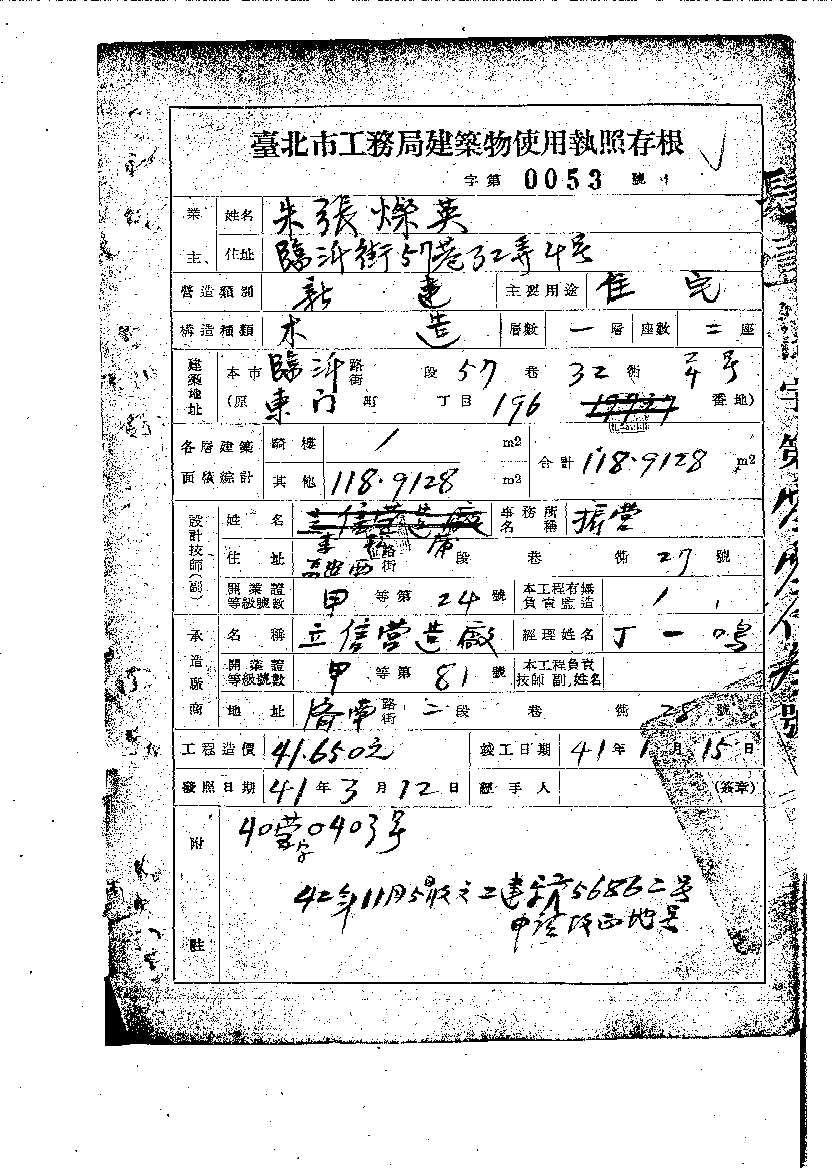 臺北市工務局建築物使用執照存根
字第 0053 號
業主 姓名 朱張燦英
住址 臨沂街57巷32弄4号
營造類別 新建 主要用途 住宅
構造種類 木造 層數 一層 座數 二座
建築地址 本市 臨沂 路街 段 57 巷 32 衖 4号
(原 東门 町 丁目 196 番地)
各層建築面積綜計 騎樓 / m2 合計 118.9128 m2
其他 118.9128 m2
設計技師(副) 姓名 事務所名稱 振营
住址 路街 段 巷 衖 27 號
開業證等級號數 甲 等第 24 號 本工程有無負責監造 /
承造廠商 名稱 立信营造廠 經理姓名 丁一鳴
開業證等級號數 甲 等第 81 號 本工程負責技師副,姓名
地址 濟南 路街 二 段 巷 衖 28 號
工程造價 41.650元 竣工日期 41年1月15日
發照日期 41年3月12日 經手人 (簽章)
附註 40营字0403号
42年11月5日收文工建字第56862号
申請改正地号